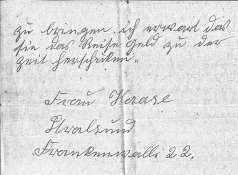 zu bringen ich erwart das
sie das Reise Geld zu der
zeit herschicken.
Frau Haase
Stralsund
Frankenwall 22.